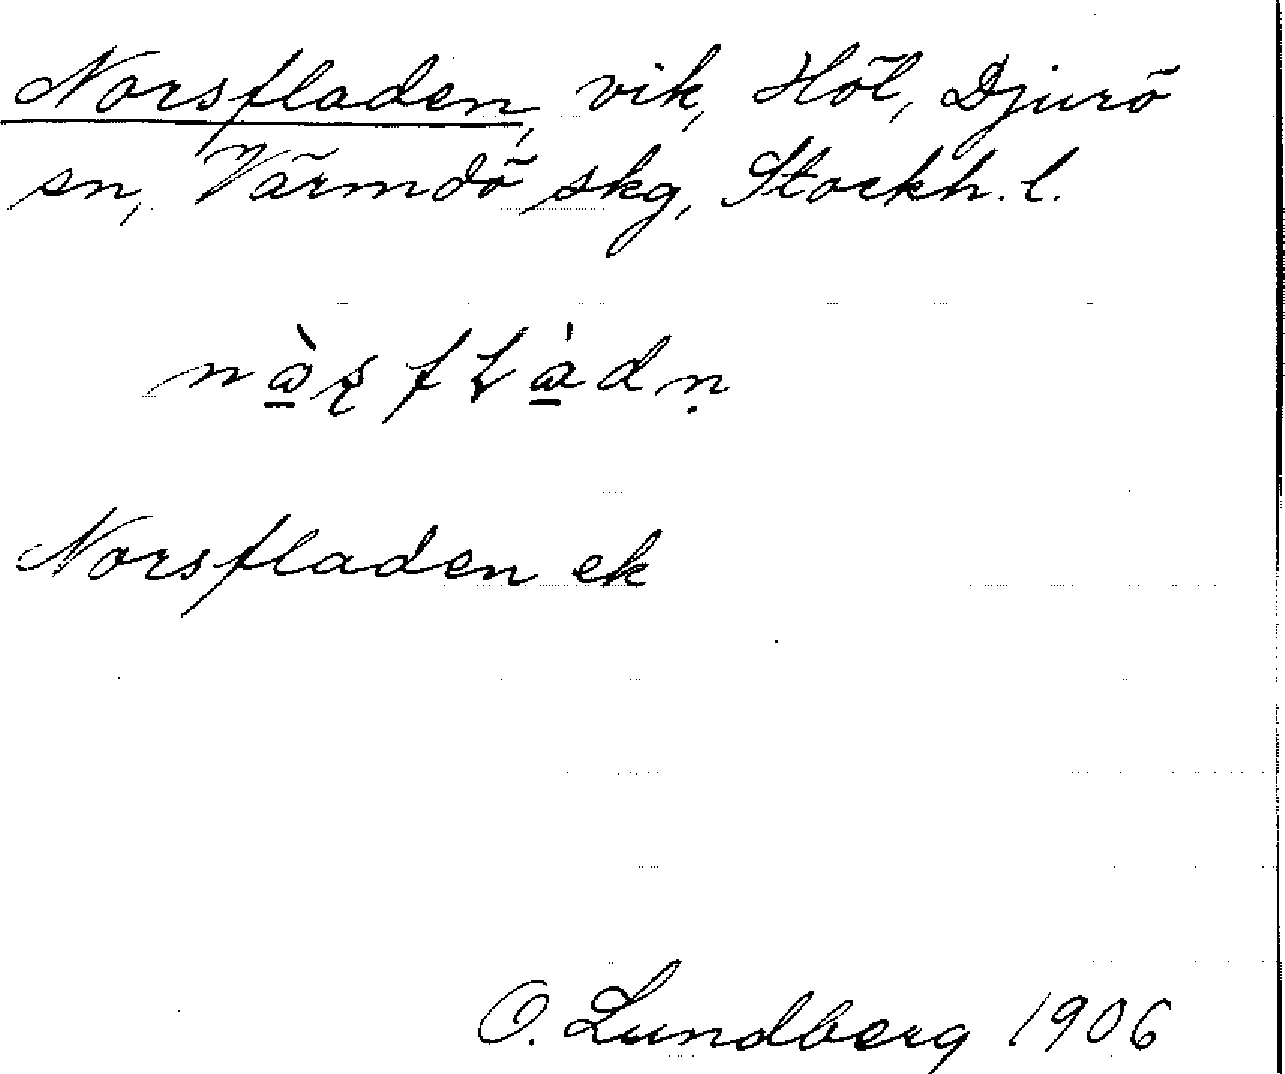 Norsfladen, vik, Höl, Djurö
sn, Värmdö skg, Stockh. l.
Norsfladen ek
O. Lundberg 1906